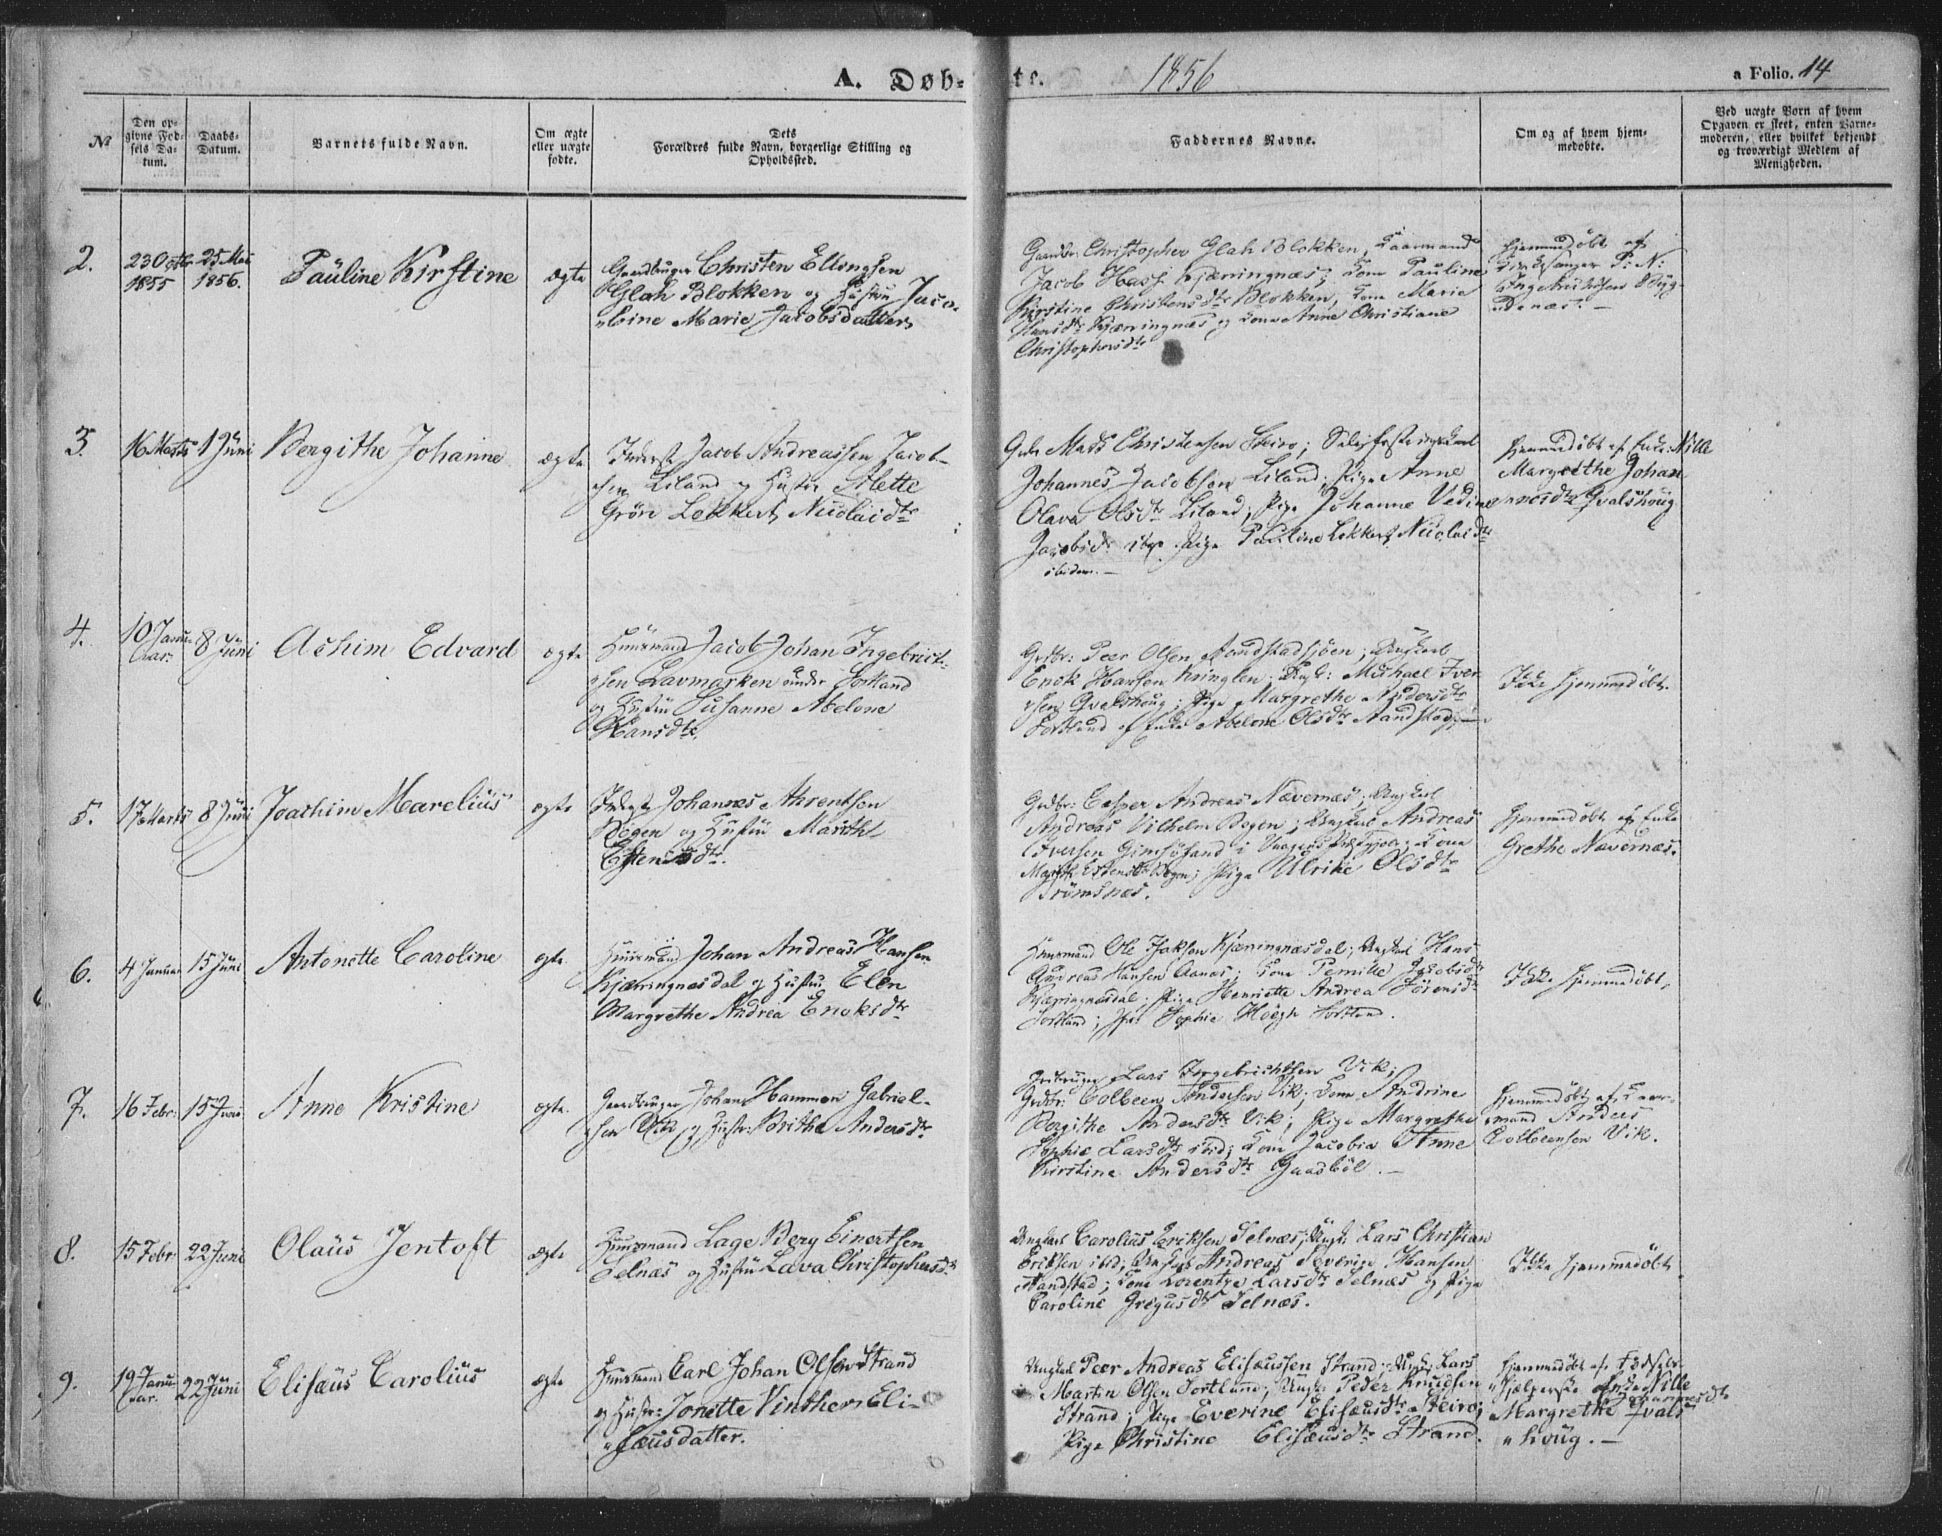 A. Døb-te. 1856 a Folio. 14
No
Den op-
givne Fød-
sels Da-
tum.
Daabs-
Datum.
Barnets fulde Navn.
Om ægte
eller uægte
fødte.
Dets
Forældres fulde Navn, borgerlige Stilling og
Opholdssted.
Faddernes Navne.
Om og af hvem hjem-
medøbte.
Ved uægte Børn af hvem
Opgaven er skeet, enten Barne-
moderen, eller hvilket betjendt
og troværdigt Medlem af
Menigheden.
2.
23 Octbr
1855
25 Mai
1856.
Pauline Kirstine
ægte
Gaardbruger Christen Ellingsen
Glah Blokken og Hustru Jaco-
"bine Marie Jacobsdatter
Gaardbr: Christopher Glah Blokken,
Jacob Hass Kjæringnæs; Kone Pauline
Kirstine Christensdtr Blokken, Kone Marie
Hansdtr Kjærringnæs og Kone Anne Christiane
Christophersdtr
Hjemmedøbt af
Kirkesanger P: N:
3.
16 Marts
1 Juni
Bergithe Johanne
ægte
Inderst Jacob Andreassen Jacob-
sen Liland og Hustru Alette
Grøn Lokkert Nicolaidtr
Mads Christensen Steiro;
Johannes Jacobsen Liland; Pige Anne
Olava Olsdtr Liland; Pige Johanne Vedine
Jacobsdtr ibid. Pige Pauline Lokkert Nicolaidtr
ibidem. —
Hjemmedøbt af Enke: Nille
Margrethe Johan
"nesdtr Qvalshoug
4.
10 Janu-
uar.
8 Juni
Achim Edvard
ægte
Huusmand Jacob Johan Ingebrict-
sen Lavmarken under Sortland
og Hustru Susanne Abelone
Hansdtr.
Grdbr: Peer Olsen Sandstadsjøen; Ungkarl
Enok Hansen Kringlen. Ungk: Michael Iver
sen Qvalshoug; Pige Margrethe Andersdtr
Sortland og Enke Abelone Olsdtr Sandstad. —
Ikke hjemmedøbt.
5.
17 Marts
8 Juni
Joachim Marelius
ægte
Inderst Johannes Ahrentsen
Bogen og Hustru Marith
Estensdtr.
Grdbr: Casper Andreas Nævernæs; Ungkarl
Andreas Vilhelm Bogen; Ungkarl Andreas
Iversen Gimsøsand i Vaagens
Marith Estensdtr Bogen; Pige Ulrike Olsdtr
Strømsnæs.
Hjemmedøbt af Enke
Grethe Nævernæs.
6.
4 Januar
15 Juni
Antonette Caroline
ægte
Huusmand Johan Andreas Hansen
Kjærringnæsdal og Hustru Elen
Margrethe Andrea Enoksdtr
Huusmand Ole Isaksen Kjæringnæsdal; Ungkarl Hans
Andreas Hansen Aanæs; Kone Pernille Jacobsdtr
Kjæringnæsdal; Pige Henriette Andrea Sørensdtr
Sortland; Sophie Høegh Sortland.
Ikke hjemmedøbt.
7.
16 Febr:
15 Juni
Anne Kristine
ægte.
Gaardbruger Johan Hammon Gabriel-
sen Vik og Hustr. Berithe Andersdtr
Grdbruger Lars Ingebrichtsen Vik;
Grdbr: Colbeen Andersen Vik; Kone Andrine
Bergithe Andersdtr Vik; Pige Margrethe
Sophie Larsdtr ibid; Kone Jacobia Anne
Kirstina Andersdtr Guasbøl. —
Hjemmedøbt af Kaar-
mand Anders
Colbeensen Vik.
8.
15 Febr:
22 Juni
Olaus Jentoft
ægte
Huusmand Lage Berg Einertsen
Selnæs og Hustru Lava Christophersdtr
Ungkarl Carolius Eriksen Selnæs; Ungk: Lars Christian
Eriksen ibid; Ungkarl Andreas Severin Hansen
Sandstad; Kone Lorentze Larsdtr Selnæs og Pige
Caroline Gregusdtr Selnæs.
Ikke hjemmedøbt.
9.
19 Janu
uar.
22 Juni
Elisæus Carolius
ægte
Huusmand Carl Johan Olsen Strand
og Hustr: Jonette Vinther Eli-
"sæusdatter.
Ungkarl Peer Andreas Elisæussen Strand; Ungk: Lars
Martin Olsen Sortland; Ungk: Peder Knudsen
Strand; Pige Everine Elisæusdtr Steiro;
Pige Christine Elisæusdtr Strand.
Hjemmedøbt af Fødsels-
"hjælperske Enke Nille
Johannesdtr
Margrethe Qvals
"houg. —